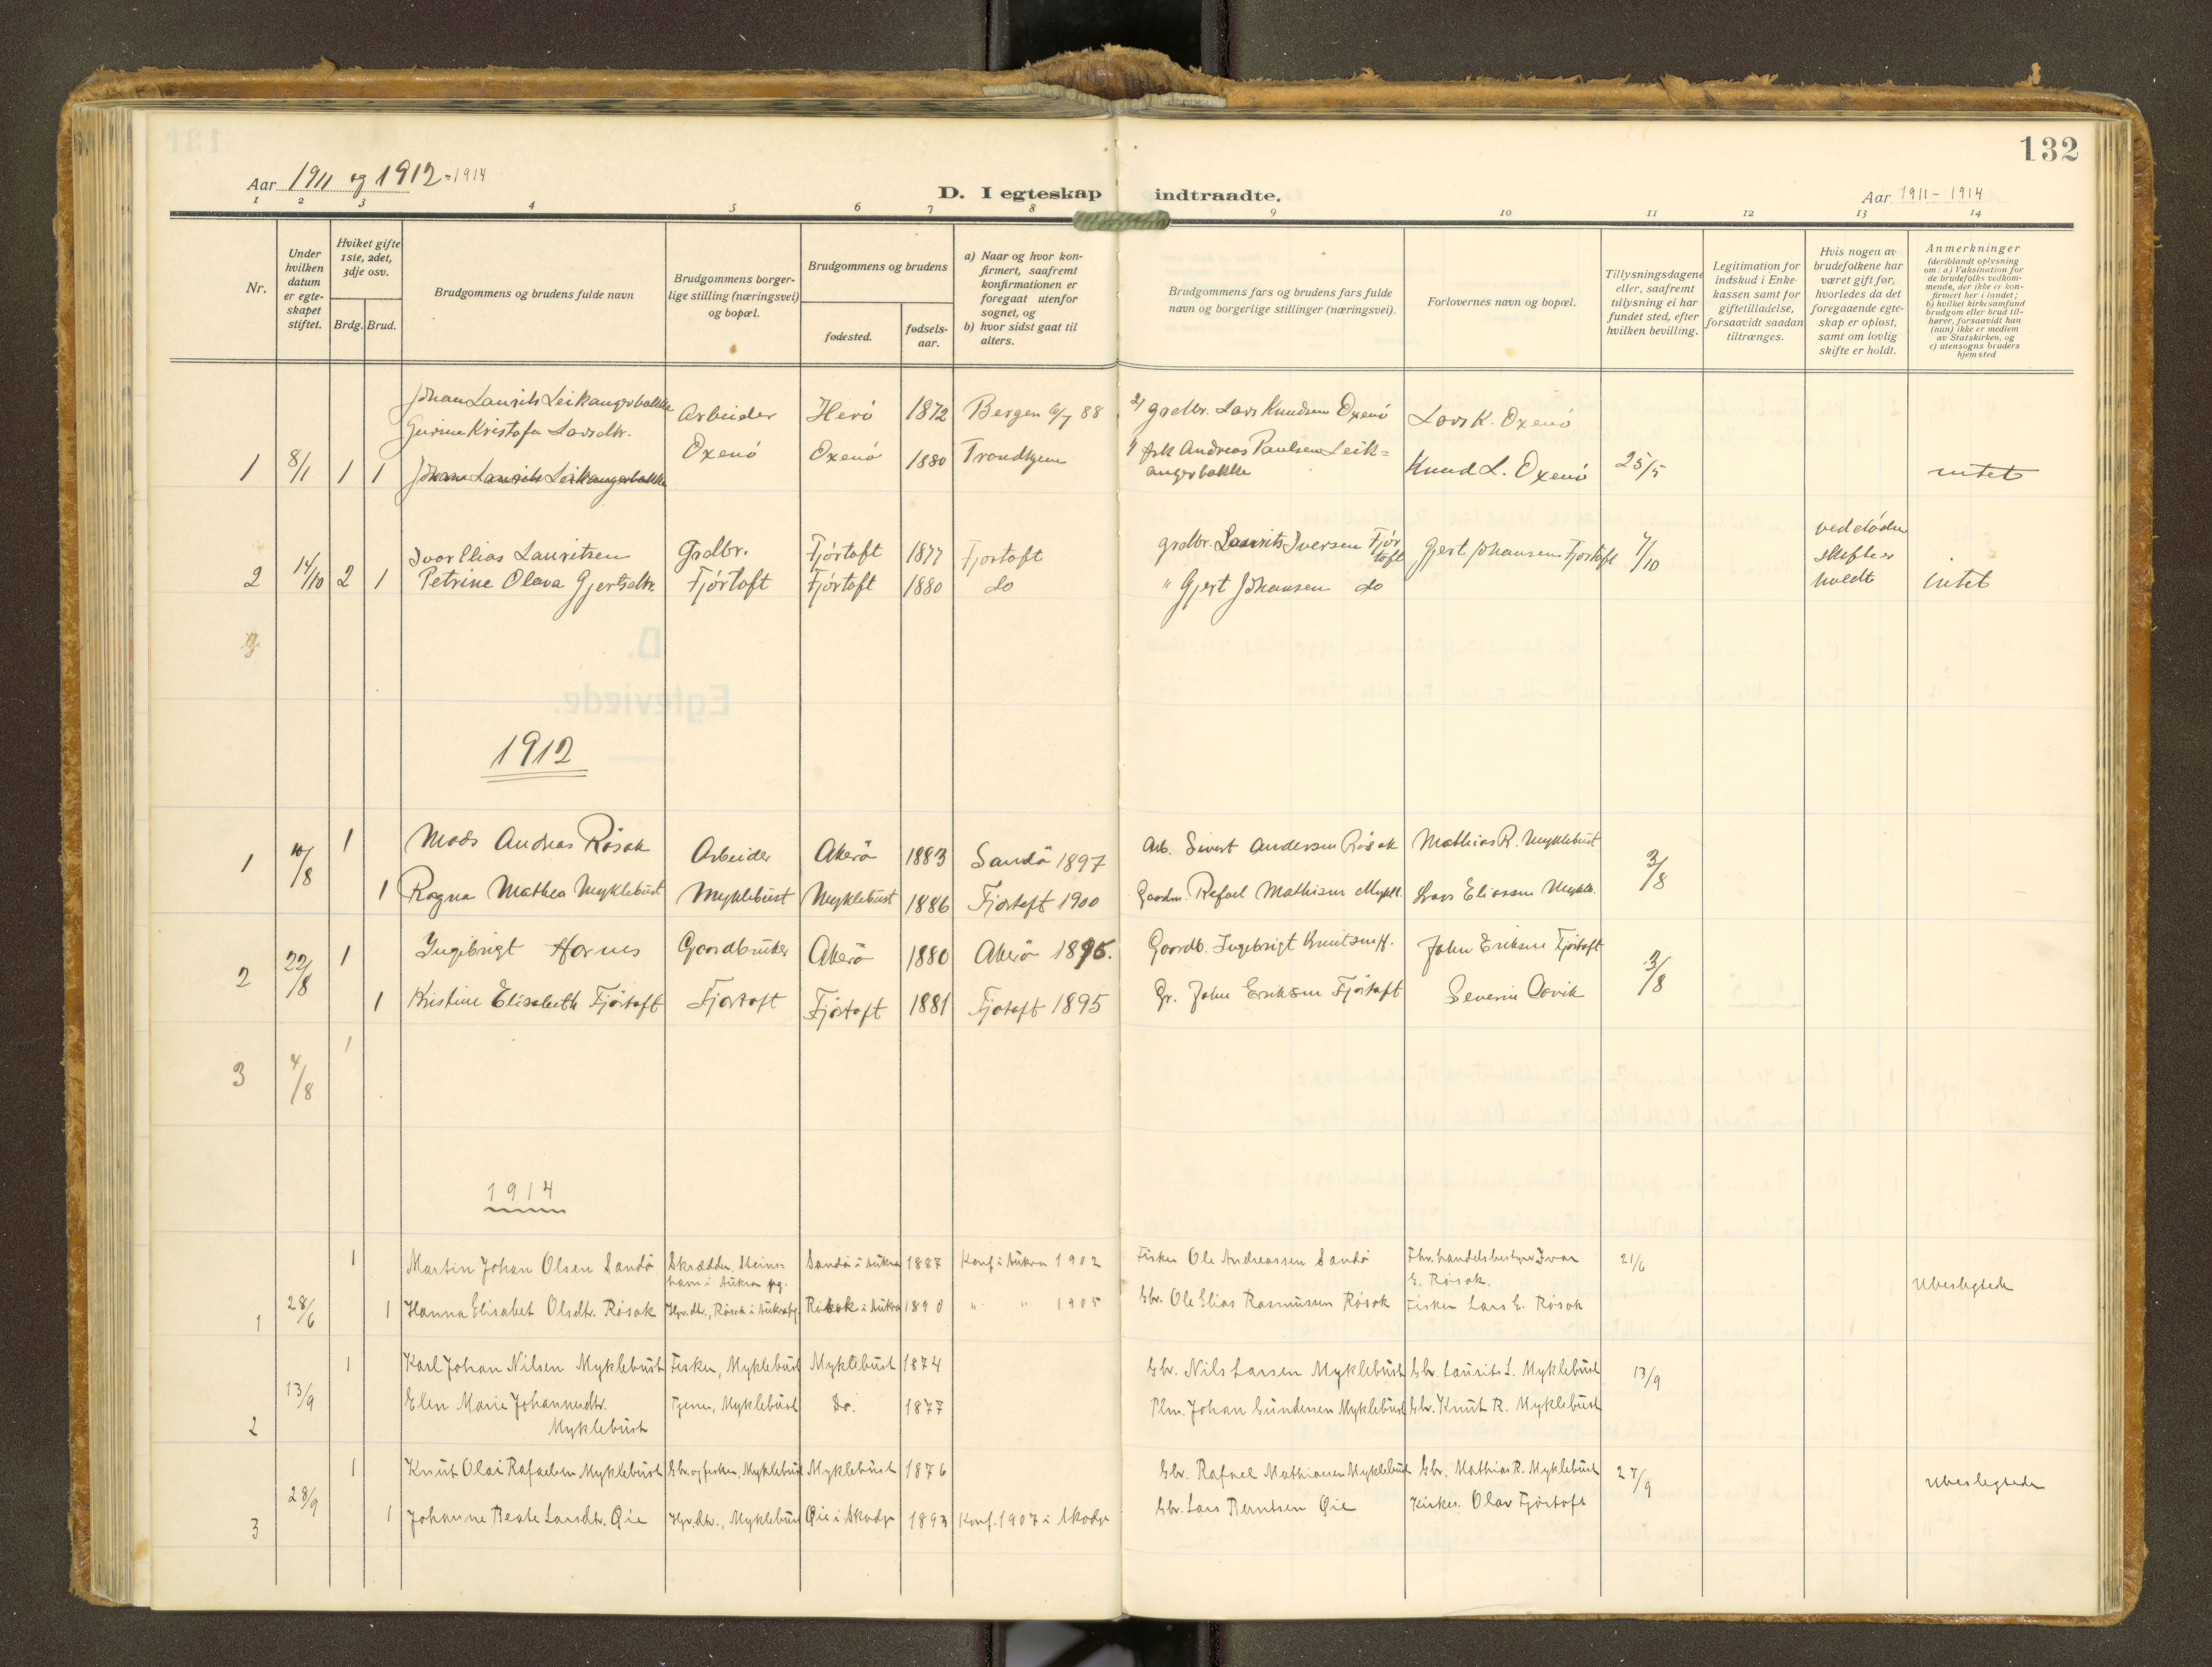 132
Aar 1911 og 1912-1914
D. I egteskap indtraadte.
Aar 1911-1914
1 2 3 4 5 6 7 8 9 10 11 12 13 14
Nr.
Under hvilken datum er egteskapet stiftet.
Hviket gifte 1ste, 2det, 3dje osv.
Brdg. Brud.
Brudgommens og brudens fulde navn
Brudgommens borgerlige stilling (næringsvei) og bopæl.
Brudgommens og brudens
fødested.
fødselsaar.
a) Naar og hvor konfirmert, saafremt konfirmationen er foregaat utenfor sognet, og
b) hvor sidst gaat til alters.
Brudgommens fars og brudens fars fulde navn og borgerlige stillinger (næringsvei).
Forlovernes navn og bopæl.
Tillysningsdagene eller, saafremt tillysning ei har fundet sted, efter hvilken bevilling.
Legitimation for indskud i Enkekassen samt for giftetilladelse, forsaavidt saadan tiltrænges.
Hvis nogen av brudefolkene har været gift før, hvorledes da det foregaaende egteskap er opløst, samt om lovlig skifte er holdt.
Anmerkninger
(deriblandt oplysning om: a) Vaksination for de brudefolks vedkommende, der ikke er konfirmert her i landet;
b) hvilket kirkesamfund brudgom eller brud tilhører, forsaavidt han (hun) ikke er medlem av Statskirken, og
c) utensogns bruders hjemsted
Johan Laurits Leikangerbakke Arbeider Herö 1872 Bergen 6/7 88 2) grdbr. Lars Knudsen Oxenö Lars K. Oxenö
Gurine Kristofa Larsdtr. Oxenö Oxenö 1880 Trondhjem 1) fsk Andreas Paulsen Leikangerbakke Knud L. Oxenö 25/5 intet
1 8/1 1 1 Johan Laurits Leikangerbakke
2 14/10 2 1 Ivar Elias Lauritsen Grdbr. Fjörtoft 1877 Fjortoft grdbr. Laurits Iversen Fjörtoft Gjert Johansen Fjortoft 7/10 ved döden skifte er holdt
Petrine Olava Gjertsdtr. Fjörtoft Fjörtoft 1880 do " Gjert Johansen do intet
1912
1 10/8 1 Mads Andreas Rösok Arbeider Akerö 1883 Sandö 1897 Arb. Sivert Andersen Rösok Mathias R. Myklebust 3/8
1 Ragna Mathea Myklebust Myklebust Myklebust 1886 Fjortoft 1900 Gaardm. Rafael Mathisen Mykl. Lars Eliassen Mykleb.
2 22/8 1 Ingebrigt Harnes Gaardbruker Akerö 1880 Akerö 1895. Gaardb. Ingebrigt Knutsen H. John Eriksen Fjörtoft 3/8
1 Kristine Elisabeth Fjörtoft Fjortoft Fjörtoft 1881 Fjotoft 1895 Gr. John Eriksen Fjörtoft Severin
3 4/8 1
1914
1 28/6 1 Martin Johan Olsen Sandø Skrædder, Steinshavn i Aukra pg. Sandø i Aukra 1887 Konf. i Aukra 1902 Fisker Ole Andreassen Sandø Fhv. handelsbestyrer Ivar E. Røsok. 21/6
1 Hanna Elisabet Olsdtr. Røsok Hpr.dtr., Røsok i Aukrapg. Røsok i Aukra 1890 " " 1905 Gbr. Ole Elias Rasmussen Røsok Fisker Lars E. Røsok Ubeslegtede
2 13/9 1 Karl Johan Nilsen Myklebust Fisker, Myklebust Myklebust 1874 Gbr. Nils Larsen Myklebust Gbr. Laurits L. Myklebust 13/9
Elen Marie Johannesdtr. Myklebust Tjener, Myklebust Do. 1877 Plm. Johan Gundersen Myklebust Gbr. Knut R. Myklebust
3 28/9 1 Knut Olai Rafaelsen Myklebust Gbr. og fisker, Myklebust Myklebust 1876 Gbr. Rafael Mathiassen Myklebust Gbr. Mathias R. Myklebust 27/9 Ubeslegtede
1 Johanne Beate Larsdtr. Øie Hpr.dtr., Myklebust Øie i Skodje 1893 Konf. 1907 i Skodje Gbr. Lars Berntsen Øie Kirkes. Olav Fjørtoft